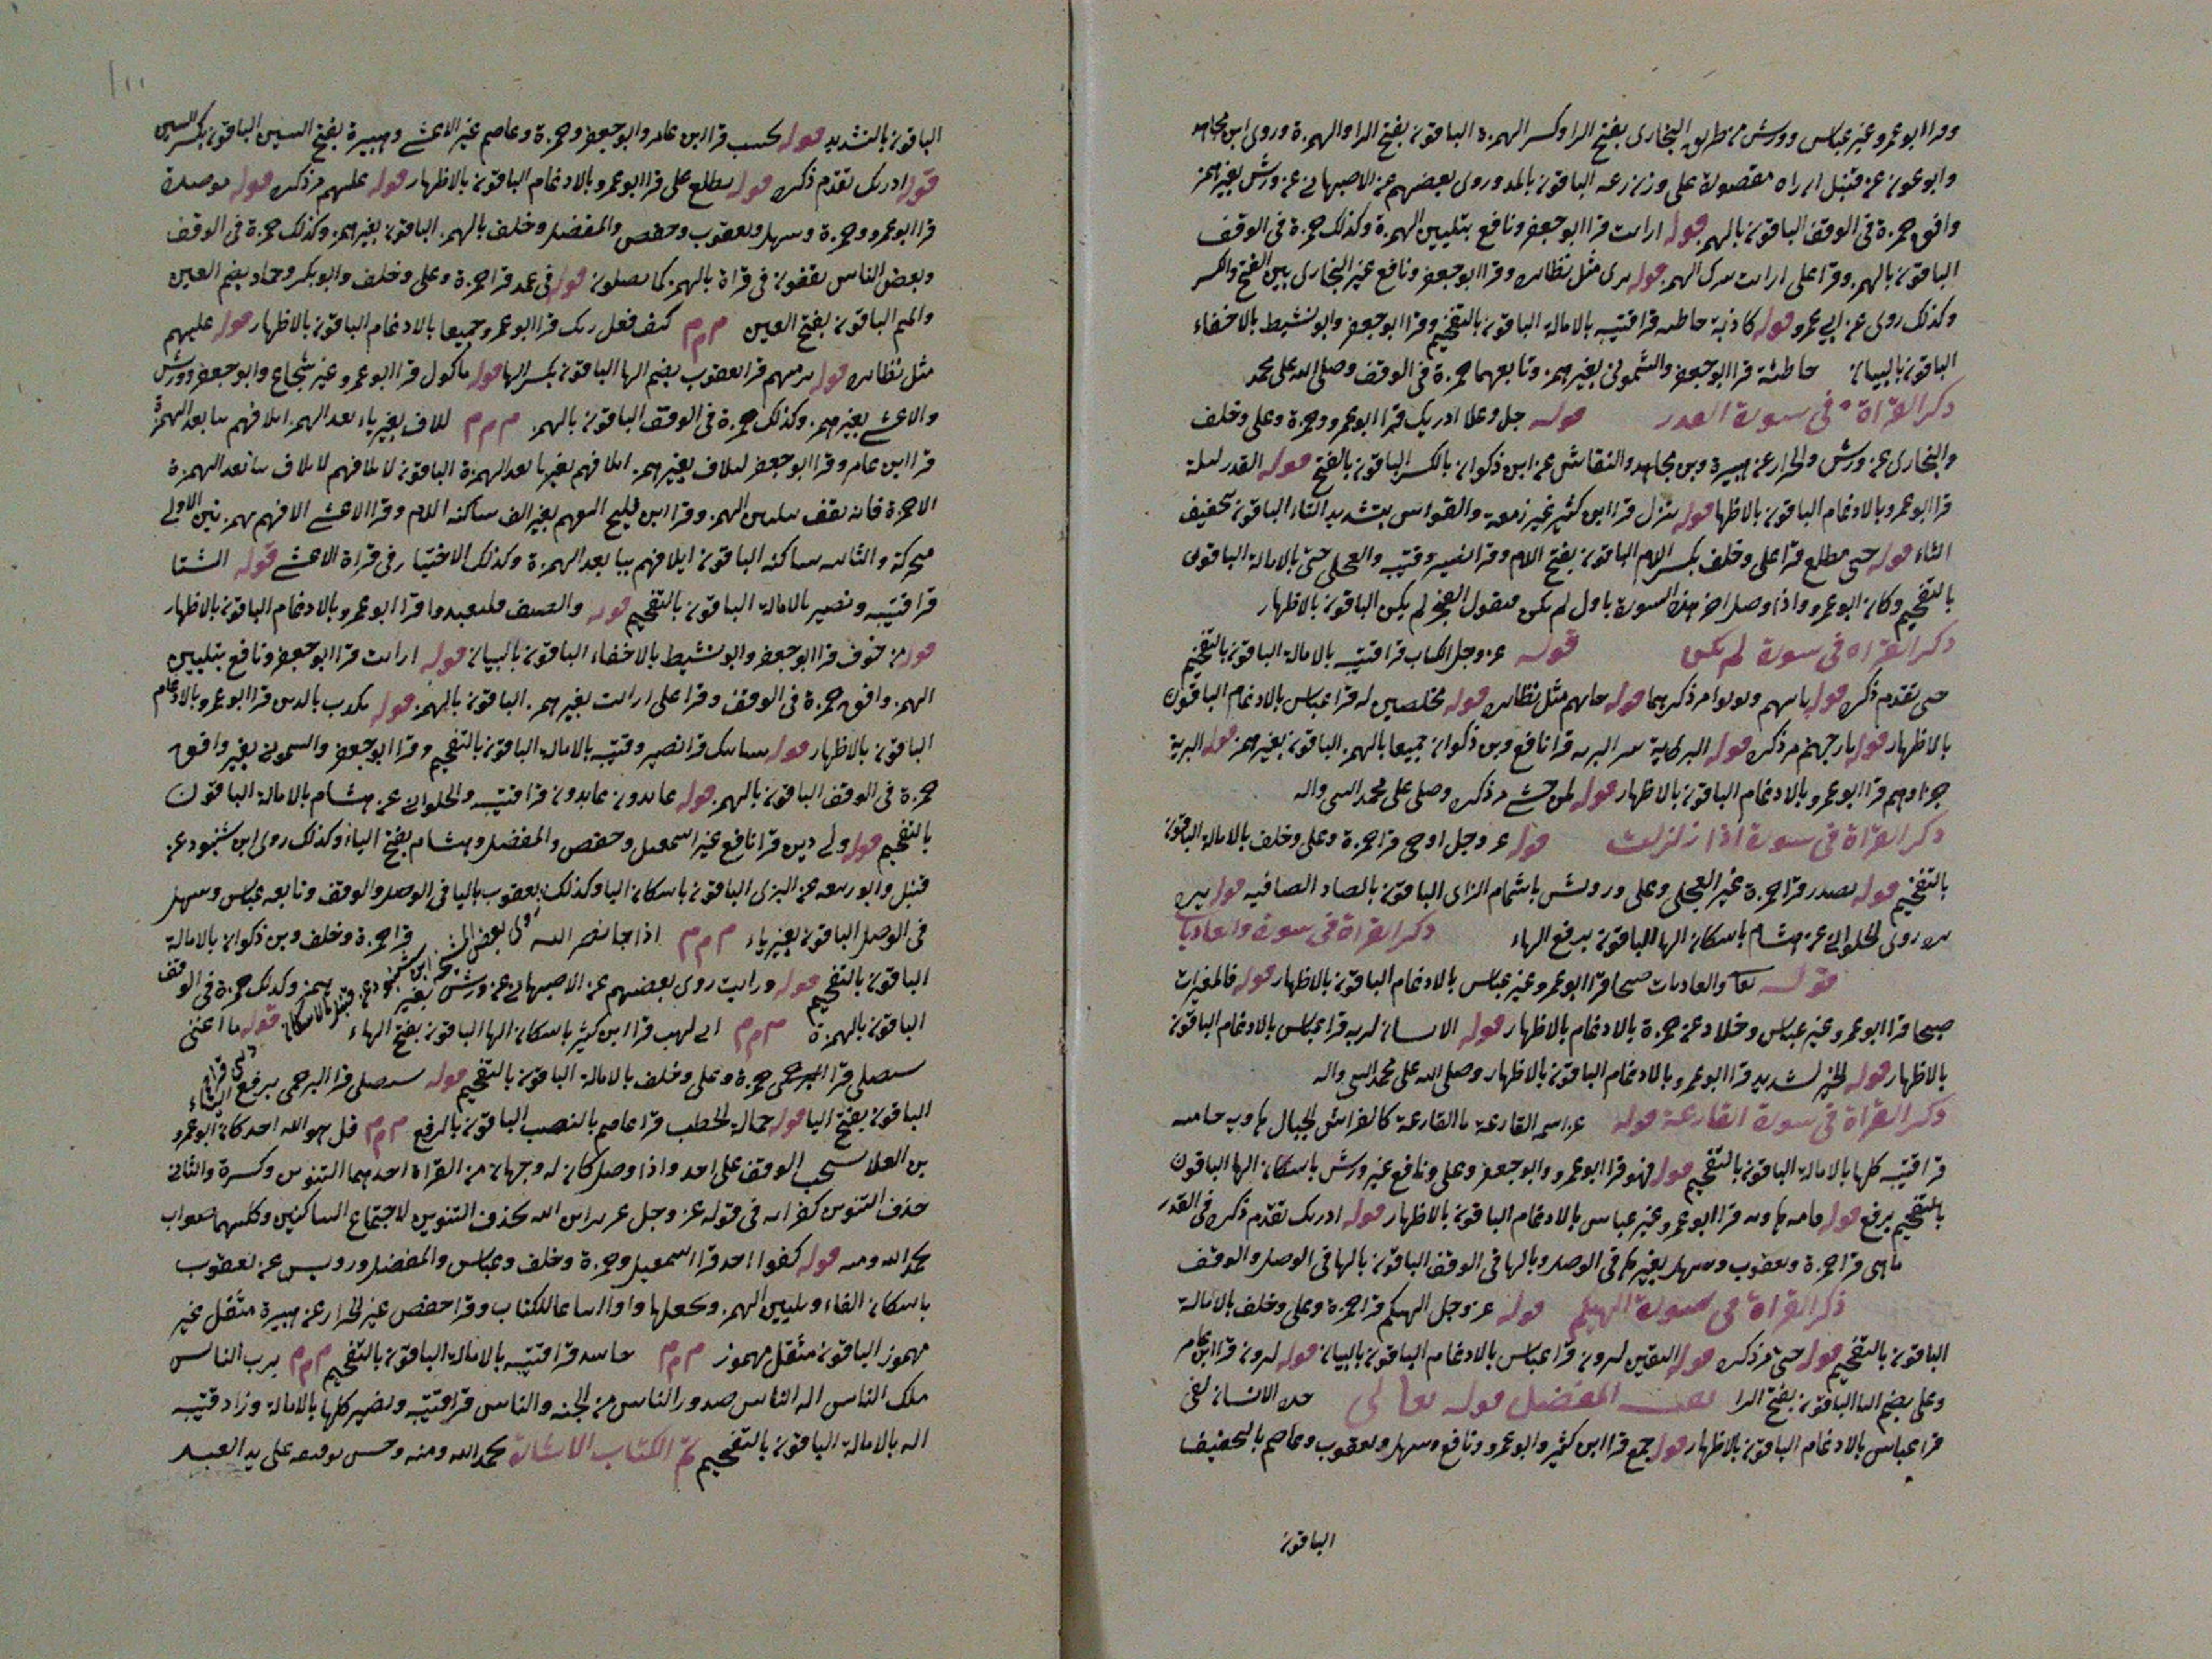 وقرا ابو عمرو غير عباس وورش من طريق البخارى بفتح الرا وكسر الهمزة الباقون بفتح الرا والهمزة وروى ابن مجاهد
وابو عون عن قنبل ان راه مقصورة على وزن رعه الباقون بالمد وروى بعضهم عن الاصبهانى عن ورش بغير همز
وافق حمزة فى الوقف الباقون بالهمز قوله ارايت قرا ابو جعفر ونافع بتليين الهمزة وكذلك حمزة فى الوقف
الباقون بالهمز وقرا على ارايت بترك الهمز قوله يرى مثل نظائره وقرا ابو جعفر ونافع غير البخارى بين الفتح والكسر
وكذلك روى عن ابى عمرو قوله كاذبة خاطئة قرا قتيبه بالامالة الباقون بالتفخيم وقرا ابو جعفر وابو نشيط بالاخفاء
الباقون بالبيان خاطئة قرا ابو جعفر والشمونى بغير همز وتابعهما حمزة فى الوقف وصلى الله على محمد
ذكر القراة فى سورة القدر قوله جل وعلا ادريك قرا ابو عمرو وحمزة وعلى وخلف
والبخارى عن ورش والخزاز عن هبيرة وبن مجاهد والنقاش عن ابن ذكوان بالكسر الباقون بالفتح قوله القدر ليلة
قرا ابو عمرو بالادغام الباقون بالاظهار قوله تنزل قرا ابن كثير غير زمعة والقواس بتشديد التاء الباقون بتخفيف
التاء قوله حتى مطلع قرا على وخلف بكسر اللام الباقون بفتح اللام وقرا نصير وقتيبه والعجلى حتى بالامالة الباقون
بالتفخيم وكان ابو عمرو واذا وصل اخر هذه السورة باول لم يكن فيقول الفجر لم يكن الباقون بالاظهار
ذكر القراه فى سورة لم يكن قوله عز وجل الكتاب قرا قتيبه بالامالة الباقون بالتفخيم
حتى تقدم ذكره قوله ياتيهم ويوتوا مر ذكرهما قوله جاتهم مثل نظائره قوله مخلصين له قرا عباس بالادغام الباقون
بالاظهار قوله نار جهنم مر ذكره قوله البرية قرا نافع وبن ذكوان جميعا بالهمز الباقون بغير همز قوله البرية
جزاوهم قرا ابو عمرو بالادغام الباقون بالاظهار قوله لمن خشى مر ذكره وصلى على محمد النبى واله
ذكر القراة فى سورة اذا زلزلت قوله عز وجل اوحى قرا حمزة وعلى وخلف بالامالة الباقون
بالتفخيم قوله يصدر قرا حمزة غير العجلى وعلى ورويس باشمام الزاى الباقون بالصاد الصافيه قوله يره
يره روى الحلوانى عن هشام باسكان الها الباقون برفع الهاء ذكر القراة فى سورة والعاديات
قوله تعالى والعاديات ضبحا قرا ابو عمرو وغير عباس بالادغام الباقون بالاظهار قوله فالمغيرات
صبحا قرا ابو عمرو غير عباس وخلاد عن حمزة بالادغام بالاظهار قوله الانسان لربه قرا عباس بالادغام الباقون
بالاظهار قوله الخير لشديد قرا ابو عمرو بالادغام الباقون بالاظهار وصلى الله على محمد النبى واله
ذكر القراة فى سورة القارعة قوله عز اسمه القارعة ما القارعة كالفراش الجبال هاويه حاميه
قرا قتيبه كلها بالامالة الباقون بالتفخيم قوله فهو قرا ابو عمرو وابو جعفر وعلى ونافع غير ورش باسكان الها الباقون
بالتفخيم برفع قوله فامه هاويه قرا ابو عمرو غير عباس بالادغام الباقون بالاظهار قوله ادريك تقدم ذكره فى القدر
ماهى قرا حمزة ويعقوب وسهل بغير ها فى الوصل وبالها فى الوقف الباقون بالها فى الوصل والوقف
ذكر القراة فى سورة الهيكم قوله عز وجل الهيكم قرا حمزة وعلى وخلف بالامالة
الباقون بالتفخيم قوله حتى مر ذكره قوله اليقين لترون قرا عباس بالادغام الباقون بالبيان قوله لترون قرا ابن عامر
وعلى بضم التا الباقون بفتح التا المفضل قوله تعالى الانسان لفى
قرا عباس بالادغام الباقون بالاظهار قوله جمع قرا ابن كثير وابو عمرو ونافع وسهل ويعقوب وعاصم بالتخفيف
الباقون
الباقون بالتشديد قوله يحسب قرا ابن عامر وابو جعفر وحمزة وعاصم غير الاعشى وهبيرة بفتح السين الباقون بكسر السين
قوله ادريك تقدم ذكره قوله تطلع على قرا ابو عمرو بالادغام الباقون بالاظهار قوله عليهم مر ذكره قوله موصدة
قرا ابو عمرو وحمزة وسهل ويعقوب وحفص والمفضل وخلف بالهمز الباقون بغير همز وكذلك حمزة فى الوقف
وبعض الناس يقفون فى قراة بالهمز كما يصلون قوله فى عمد قرا حمزة وعلى وخلف وابو بكر وحماد بضم العين
والميم الباقون بفتح العين م م م كيف فعل ربك قرا ابو عمرو جميعا بالادغام الباقون بالاظهار قوله عليهم
مثل نظائره قوله ترميهم قرا يعقوب بضم الها الباقون بكسر الها قوله ماكول قرا ابو عمرو غير شجاع وابو جعفر وورش
والاعشى بغير همز وكذلك حمزة فى الوقف الباقون بالهمز م م م لئلاف بغير ياء بعد الهمز ايلافهم بيا بعد الهمزة
قرا ابن عامر وقرا ابو جعفر ليلاف بغير همز الافهم بغير يا بعد الهمزة الباقون لايلاف بيا بعد الهمزة
الا حمزة فانه يقف بتليين الهمز وقرا ابن فليح الفهم بغير الف ساكنه اللام وقرا الاعشى الافهم بهمزتين الاولى
متحركة والثانيه ساكنه الباقون ايلافهم بيا بعد الهمزة وكذلك الاختيار فى قراة الاعشى قوله الشتا
قرا قتيبه ونصير بالامالة الباقون بالتفخيم قوله والصيف فليعبدوا قرا ابو عمرو بالادغام الباقون بالاظهار
قوله من خوف قرا ابو جعفر وابو نشيط بالاخفاء الباقون بالبيان قوله ارايت قرا ابو جعفر ونافع بتليين
الهمز وافق حمزة فى الوقف وقرا على ارايت بغير همز الباقون بالهمز قوله يكذب بالدين قرا ابو عمرو بالادغام
الباقون بالاظهار قوله شانيك قرا نصير وقتيبه بالامالة الباقون بالتفخيم وقرا ابو جعفر والشمونى بغير وافق
حمزة فى الوقف الباقون بالهمز قوله عابدون عابدون قرا قتيبه والحلوانى عن هشام بالامالة الباقون
بالتفخيم قوله ولى دين قرا نافع غير اسمعيل وحفص والمفضل وهشام بفتح الياء وكذلك روى ابن شنبوذ عن
قنبل وابو ربيعه عن البزى الباقون باسكان اليا وكذلك يعقوب باليا فى الوصل والوقف وتابعه عباس وسهل
فى الوصل الباقون بغير ياء م م م اذا جا نصر الله قرا حمزة وخلف وبن ذكوان بالامالة
الباقون بالتفخيم قوله ورايت روى بعضهم عن الاصبهانى عن ورش بغير همز وكذلك حمزة فى الوقف
الباقون بالهمزة م م م ابى لهب قرا ابن كثير باسكان الها الباقون بفتح الهاء قوله ما اغنى
سيصلى قرا حمزة وعلى وخلف بالامالة الباقون بالتفخيم قوله سيصلى قرا البرجمى برفع الياء
الباقون بفتح اليا قوله حمالة الحطب قرا عاصم بالنصب الباقون بالرفع م م م قل هو الله احد كان ابو عمرو
بن العلا يستحب الوقف على احد واذا وصل كان له وجهان من القراة احدهما التنوين وكسرة والثانى
حذف التنوين كقراته فى قوله عز وجل عزير ابن الله بحذف التنوين لاجتماع الساكنين وكليهما صواب
بحمد الله ومنه قوله كفوا احد قرا اسمعيل وحمزة وخلف وعباس والمفضل ورويس عن يعقوب
باسكان الفاء وبليين الهمز ويجعلها واوا اتباعا للكتاب وقرا حفص غير الخزاز عن هبيرة مثقل غير
مهموز الباقون مثقل مهموز م م م حاسد قرا قتيبه بالامالة الباقون بالتفخيم م م م برب الناس
ملك الناس اله الناس صدور الناس من الجنه والناس قرا قتيبه ونصير كلها بالامالة وزاد قتيبه
اله بالامالة الباقون بالتفخيم تم الكتاب بحمد الله ومنه وحسن توفيقه على يد العبد